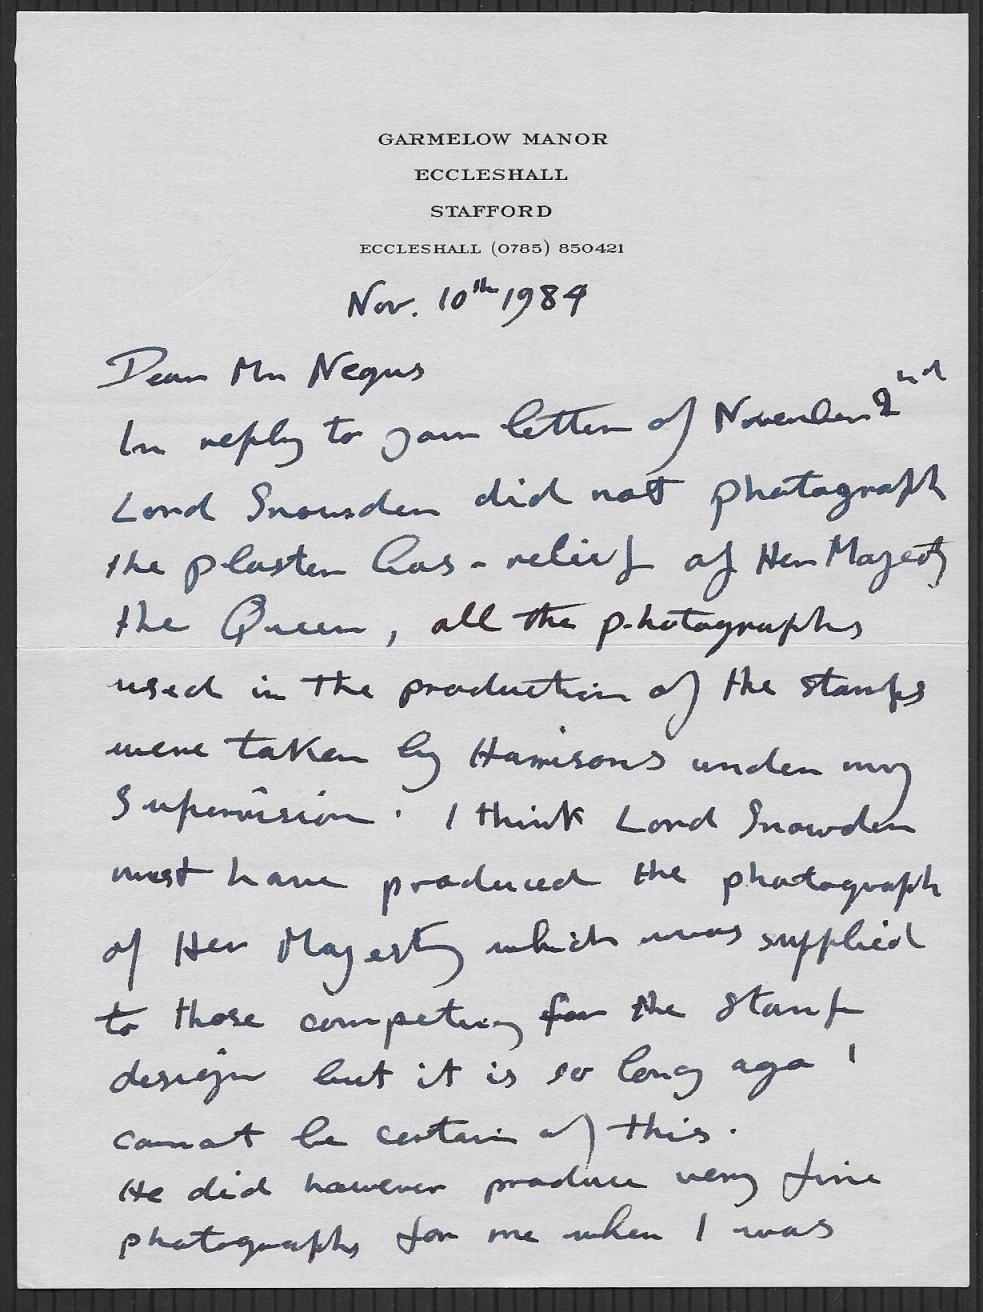 GARMELOW MANOR
ECCLESHALL
STAFFORD
ECCLESHALL (0785) 850421
Nov. 10th 1984
Dear Mr Negus
In reply to your letter of November 2nd
Lord Snowden did not photograph
the plaster bas-relief of Her Majesty
the Queen, all the photographs
used in the production of the stamps
were taken by Harrisons under my
supervision. I think Lord Snowden
must have produced the photograph
of Her Majesty which was supplied
to those competing for the stamp
design but it is so long ago I
cannot be certain of this.
He did however produce very fine
photographs for me when I was